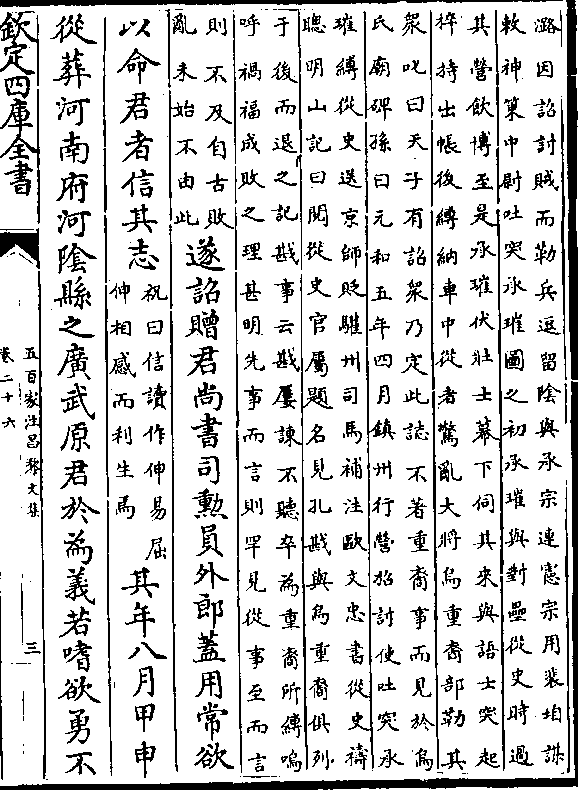 潞因詔討賊而勒兵逗留陰與承宗連憲宗用裴垍謀
敕神策中尉吐突承璀圖之初承璀與對壘從史時過
其營飲博至是承璀伏壯士幕下伺其來與語士突起
捽持出帳後縛納車中從者驚亂大將烏重裔部勒其
衆叱曰天子有詔衆乃定此誌不著重裔事而見於烏
氏廟碑孫曰元和五年四月鎮州行營招討使吐突承
璀縛從史送京師貶驩州司馬補注歐文忠書從史禱
聰明山記曰閱從史官屬題名見孔戡與烏重裔俱列
于後而退之記戡事云戡屢諫不聽卒為重裔所縛嗚
呼禍福成敗之理甚明先事而言則罕見從事至而言
則不及自古敗
亂未始不由此
遂詔贈君尚書司勲員外郎蓋用常欲
以命君者信其志
祝曰信讀作伸易屈
伸相感而利生焉
其年八月甲申
從葬河南府河陰縣之廣武原君於為義若嗜欲勇不
欽定四庫全書
五百家注昌黎文集
卷二十六
三